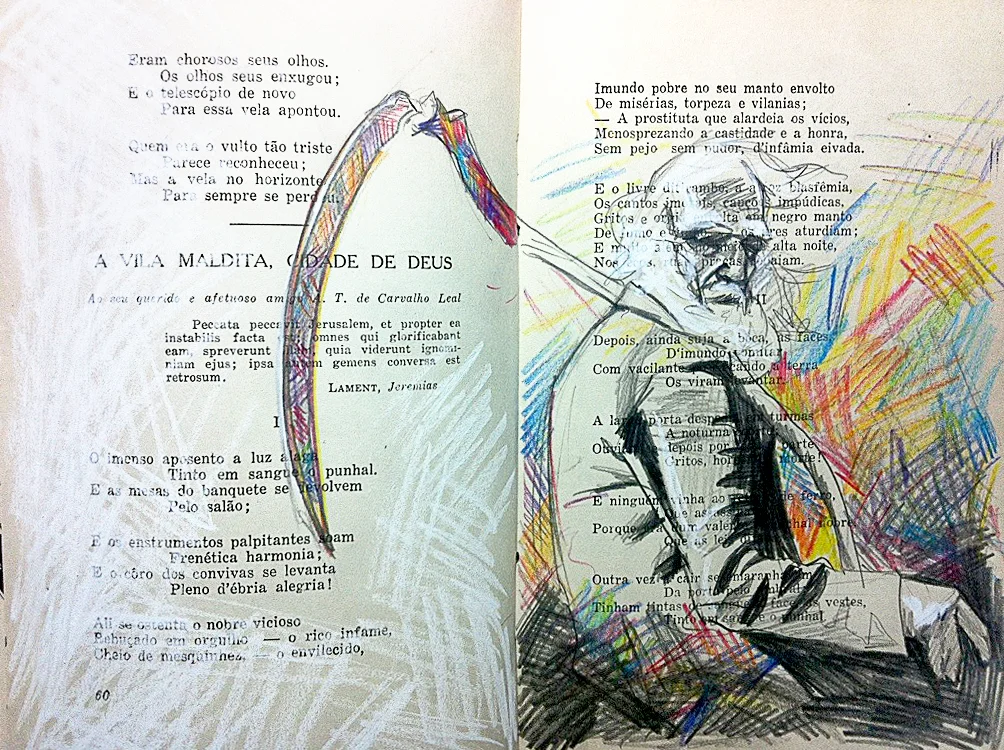 Eram chorosos seus olhos.
Os olhos seus enxugou;
E o telescópio de novo
Para essa vela apontou.
Quem era o vulto tão triste
Parece reconheceu;
Mas a vela no horizonte
Para sempre se perdeu.
A VILA MALDITA, CIDADE DE DEUS
Ao seu querido e afetuoso amigo A. T. de Carvalho Leal
Peccata peccavit Jerusalem, et propter ea
instabilis facta est; omnes qui glorificabant
eam, spreverunt illam, quia viderunt ignomi-
niam ejus; ipsa autem gemens conversa est
retrosum.
LAMENT, Jeremias
I
O imenso aposento a luz alaga
Tinto em sangue o punhal.
E as mesas do banquete se devolvem
Pelo salão;
E os enstrumentos palpitantes soam
Frenética harmonia;
E o côro dos convivas se levanta
Pleno d'ébria alegria!
Ali se ostenta o nobre vicioso
Rebuçado em orgulho — o rico infame,
Cheio de mesquinhez, — o envilecido,
60
Imundo pobre no seu manto envolto
De misérias, torpeza e vilanias;
— A prostituta que alardeia os vícios,
Menosprezando a castidade e a honra,
Sem pejo sem pudor, d'infâmia eivada.
E o livre blasfêmia,
Os cantos impúdicas,
Gritos e negro manto
De aturdiam;
E alta noite,
Nos
II
Depois, ainda suja a boca, as faces
D'imundo
Com vacilante terra
Os viram levantar.
A porta em turmas
A noturna
depois por parte
Gritos,
E ninguém vinha ao ferro,
Que as
Porque
Que as
Outra vez a cair se emaranha
Da porta pelo
Tinham tintas de faces, as vestes,
Tinto em sangue o punhal